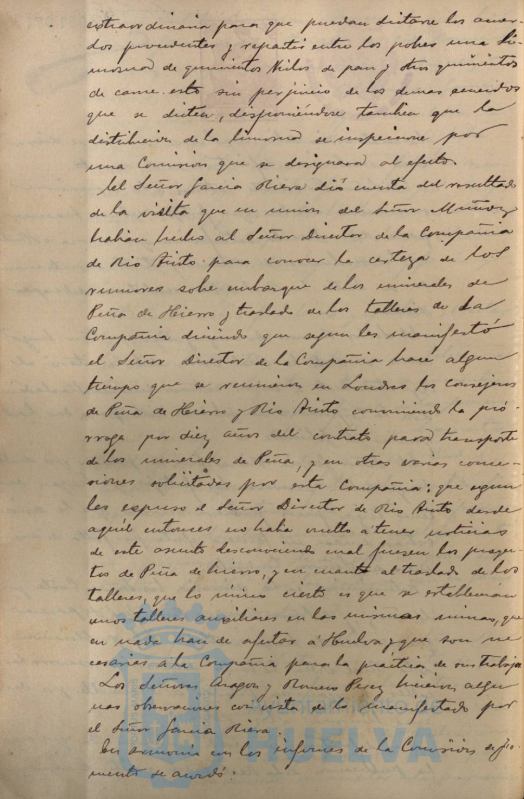 extraordinaria para que puedan dictarse los acuer-
dos procedentes y repartir entre los pobres una li-
mosna de quinientos kilos de pan y otros quinientos
de carne. esto sin perjuicio de los demas acuerdos
que se dicten, disponiéndose tambien que la
distribucion de la limosna se inspeccione por
una Comision que se designará al efecto.
El Señor Garcia Riera dió cuenta del resultado
de la visita que en union del Señor Muñoz,
habian hecho al Señor Director de la Compañia
de Rio Tinto para conocer la certeza de los
rumores sobre embarque de los minerales de
Peña de Hierro y traslado de los talleres de la
Compañia diciendo que segun les manifestó
el Señor Director de la Compañia hace algun
tiempo que se reunieron en Londres los consejeros
de Peña de Hierro y Rio Tinto conviniendo la pró-
rroga por diez años del contrato para transporte
de los minerales de Peña, y en otras varias conce-
siones solicitadas por esta Compañia; que segun
les espuso el Señor Director de Rio Tinto desde
aquél entonces no habia vuelto á tener noticias
de este asunto desconociendo cual fuesen los proyec-
tos de Peña de hierro, y en cuanto al traslado de los
talleres, que lo único cierto es que se establecerán
unos talleres auxiliares en las mismas minas, que
en nada han de afectar á Huelva y que son ne-
cesarios á la Compañia para la práctica de sus trabajos
Los Señores Aragon y Romero Perez hicieron algu-
nas observaciones con vista de lo manifestado por
el Señor Garcia Riera
En armonia con los informes de la Comision de fo-
mento se acordó:
HUELVA